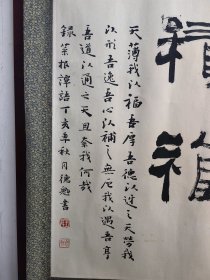 天薄我以福吾厚吾德以迓之天勞我
以形吾逸吾心以補之天厄我以遇吾亨
吾道以通之天且奈我何哉
錄菜根譚語丁亥年秋月德書